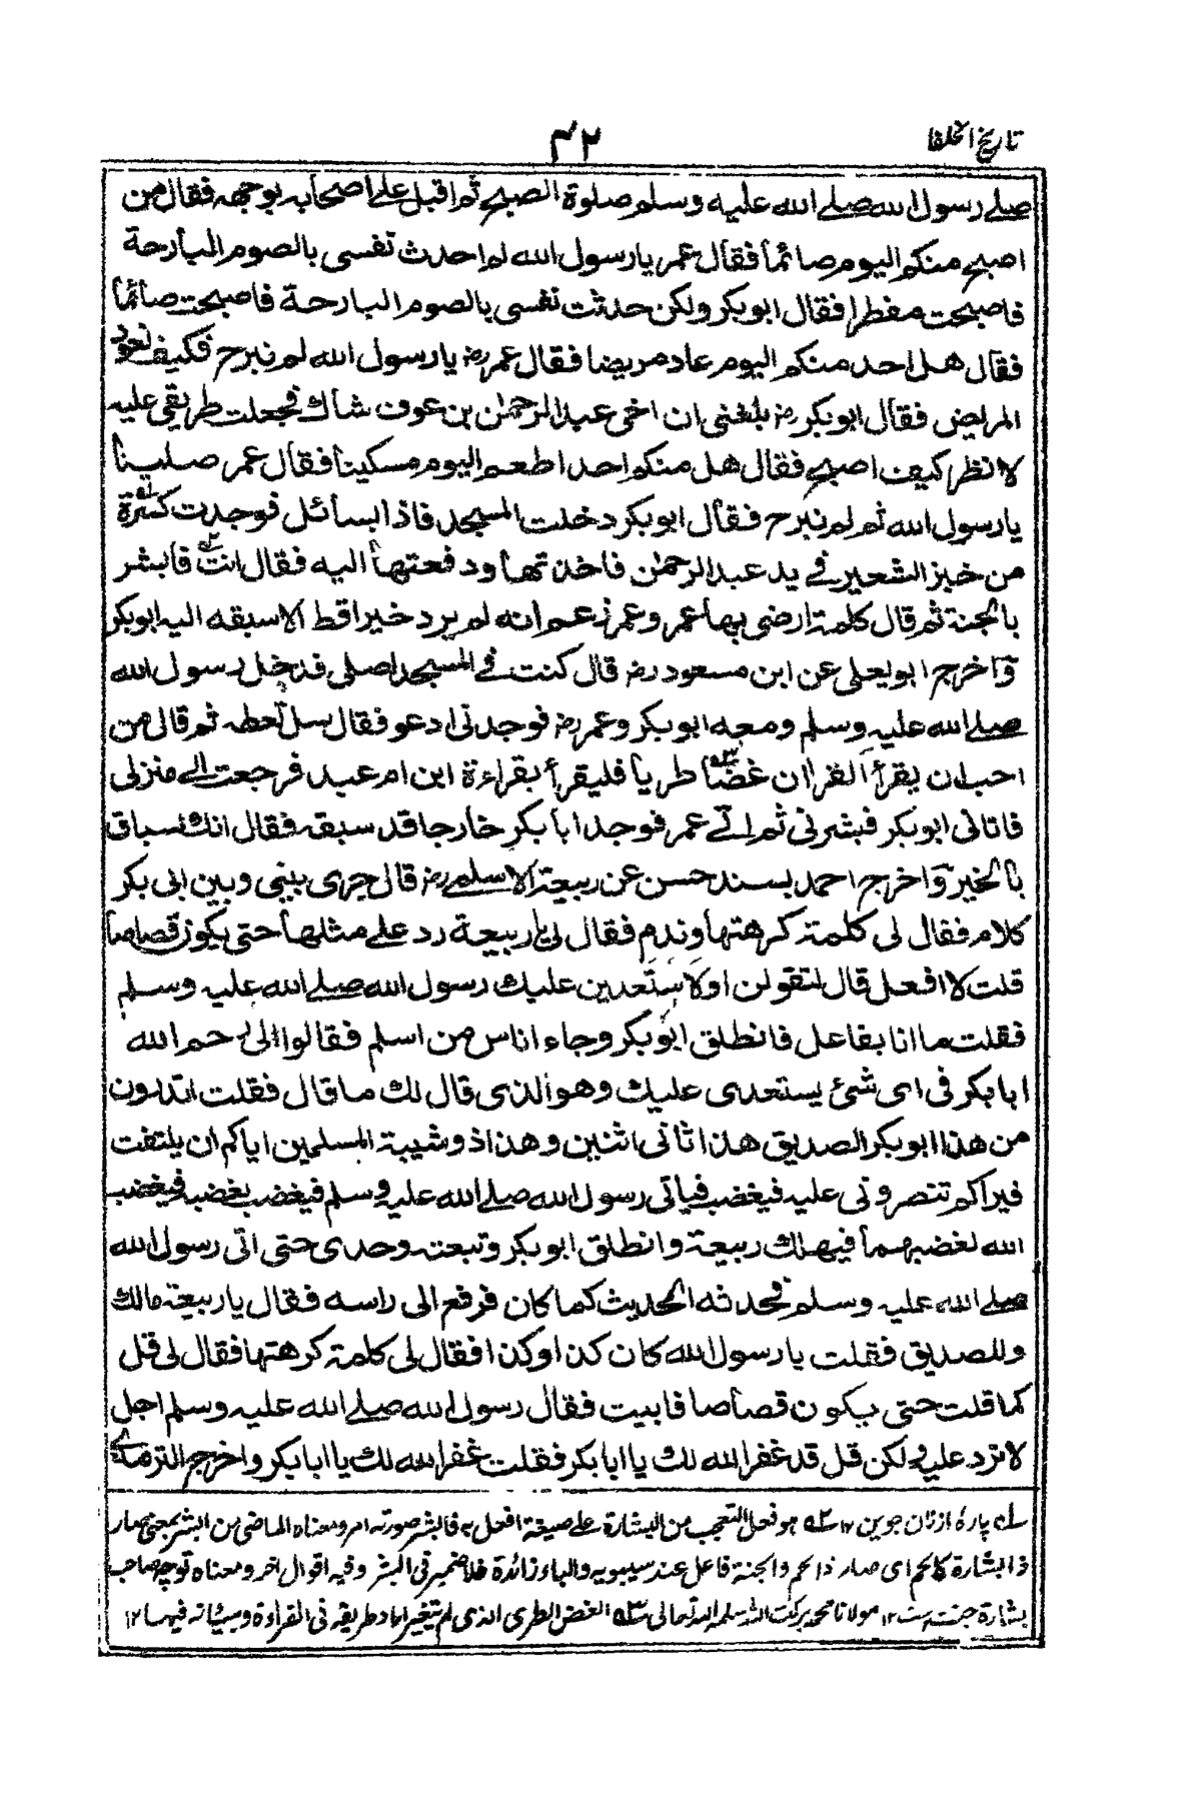 تاريخ الخلفا
۴۲
صلے رسول الله صلے الله عليه وسلم صلوة الصبح ثم اقبل علے اصحابه بوجهه فقال من
اصبح منكم اليوم صائما فقال عمر يارسول الله لم احدث نفسى بالصوم البارحة
فاصبحت مفطرا فقال ابوبكر ولكن حدثت نفسى بالصوم البارحة فاصبحت صائما
فقال هل احد منكم اليوم عاد مريضا فقال عمر رضہ يارسول الله لم نبرح فكيف نعود
المريض فقال ابوبكر رضہ بلغنى ان اخى عبد الرحمٰن بن عوف شاك فجعلت طريقى عليه
لانظر كيف اصبح فقال هل منكم احد اطعم اليوم مسكينا فقال عمر صلينا
يارسول الله ثم لم نبرح فقال ابوبكر دخلت المسجد فاذا بسائل فوجدت كسرة
من خبز الشعير فے يد عبد الرحمٰن فاخذتها ودفعتها اليه فقال انت فابشر
بالجنة ثم قال كلمة ارضى بها عمر وعمر زعم انه لم يرد خيرا قط الا سبقه اليه ابوبكر
واخرج ابويعلى عن ابن مسعود رضہ قال كنت فے المسجد اصلى فدخل رسول الله
صلے الله عليه وسلم ومعه ابوبكر وعمر رضہ فوجدنى ادعو فقال سل تعطه ثم قال من
احب ان يقرأ القراان غضّا طريا فليقرأ بقراءة ابن ام عبد فرجعت الے منزلى
فاتانى ابوبكر فبشرنى ثم اتے عمر فوجد ابابكر خارجا قد سبقه فقال انك لسباق
بالخير واخرج احمد بسند حسن عن ربيعة الاسلمے رضہ قال جرى بينى وبين ابى بكر
كلام فقال لى كلمة كرهتها وندم فقال لى ياربيعة رد علے مثلها حتى يكون قصاصا
قلت لا افعل قال لتقولن او لاستعدين عليك رسول الله صلے الله عليه وسلم
فقلت ما انا بفاعل فانطلق ابوبكر وجاء اناس من اسلم فقالوا لى رحم الله
ابابكر فى اى شئ يستعدى عليك وهو الذى قال لك ما قال فقلت اتدرون
من هذا ابوبكر الصديق هذا ثانى اثنين وهذا ذو شيبة المسلمين اياكم ان يلتفت
فيراكم تنصرونى عليه فيغضب فياتى رسول الله صلے الله عليه وسلم فيغضب بغضبه فيغضب
الله لغضبهما فيهلك ربيعة وانطلق ابوبكر وتبعته وحدى حتى اتى رسول الله
صلے الله عليه وسلم فحدثه الحديث كما كان فرفع الى راسه فقال ياربيعة مالك
وللصديق فقلت يارسول الله كان كذا وكذا فقال لى كلمة كرهتها فقال لى قل
كما قلت حتى يكون قصاصا فابيت فقال رسول الله صلے الله عليه وسلم اجل
لا ترد عليه ولكن قل قد غفر الله لك يا ابابكر فقلت غفر الله لك يا ابابكر واخرج الترمذى
لہ پارۂ از نان جوین ۱۲ ۲ہ هو فعل التعجب من البشارة علے صيغة افعل به فابشر صورته امر ومعناه الماضى من ابشر بمعنى صار
ذا بشارة كالحم اى صار ذا لحم والجنة فاعل عند سيبويه والباء زائدة فلا ضمير فى ابشر وفيه اقوال اخر ومعناه توچہ صاحب
بشارة جنت ست ۱۲ مولانا محمد بركت الله سلمه الله تعالى ۳ہ الغض الطرى الذى لم يتغير اراد طريقه فى القراءة وهيئاته فيها ۱۲